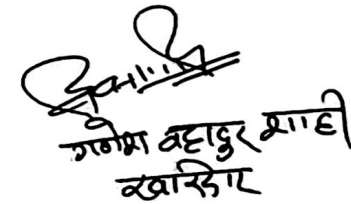 गणेश बहादुर शाही
खारिदार